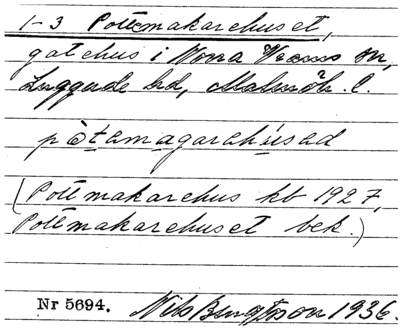 1-3 Pottmakarehuset,
gatehus i Norra Vrams sn,
Luggude hd, Malmöh. l.
pòtamagarehúsəd
(Pottmakarehus kb 1927,
Pottmakarehuset bek.)
Nr 5694. Nils Bengtsson 1936.